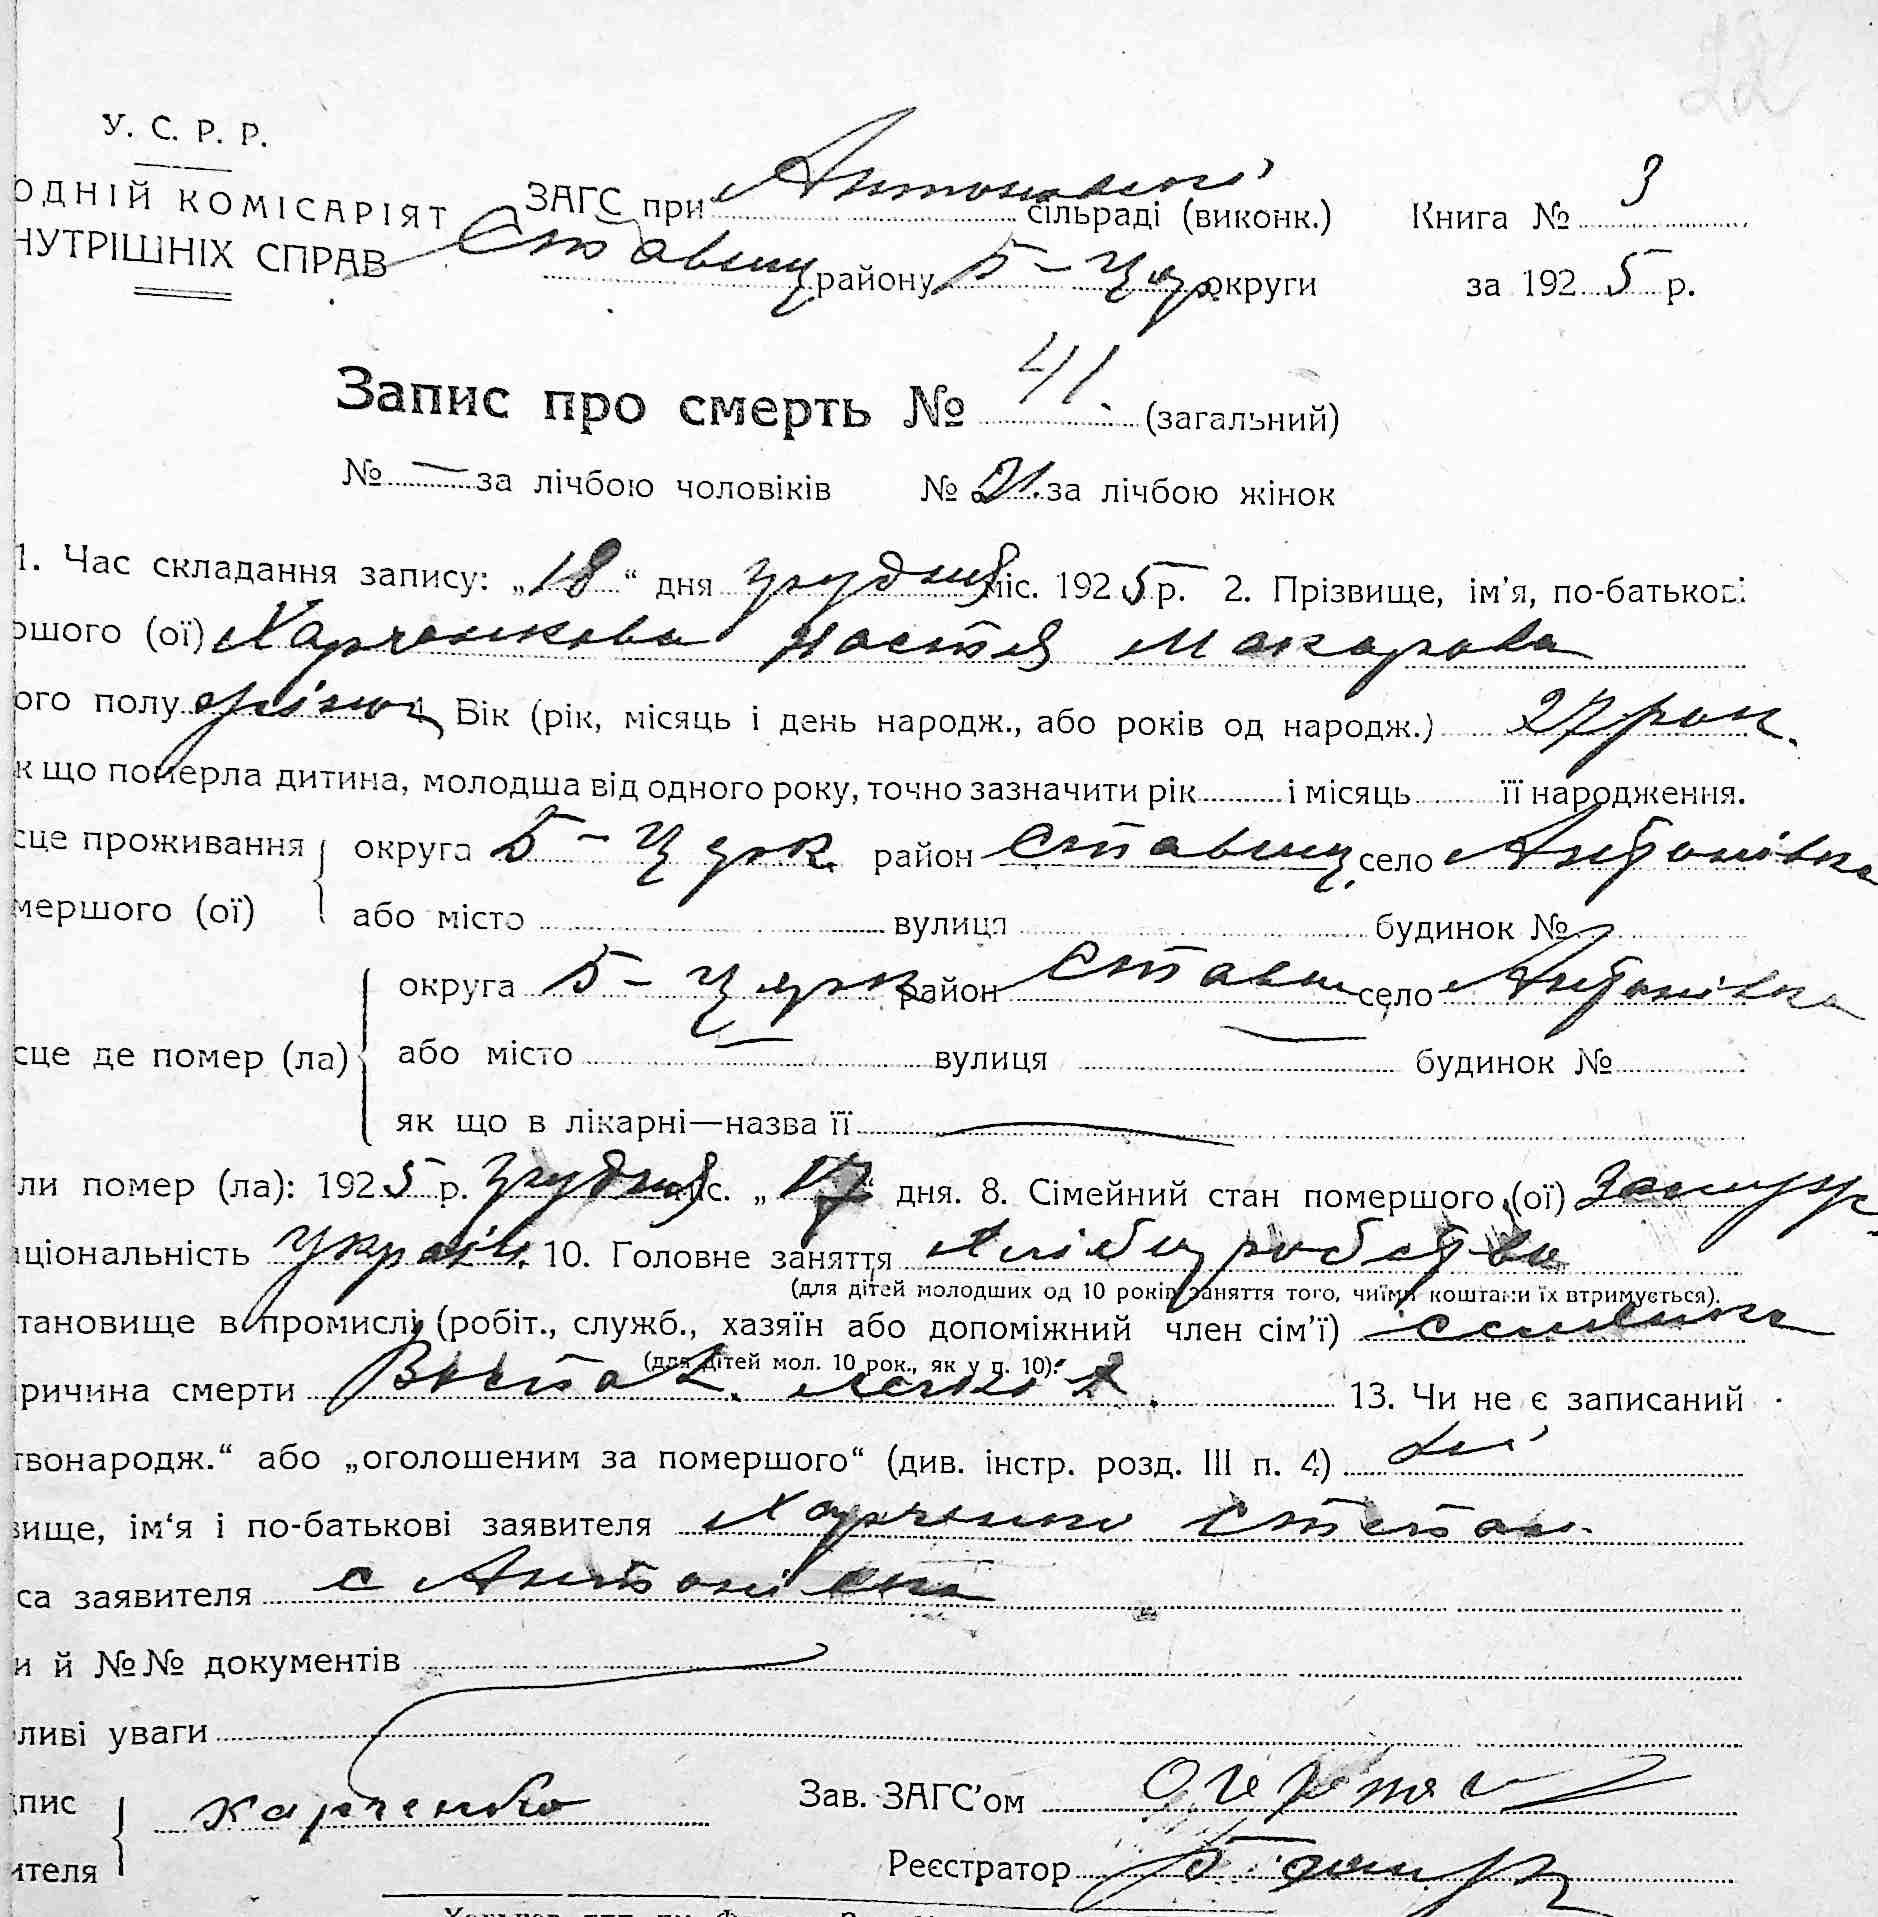 22
У. С. Р. Р.
ОДНІЙ КОМІСАРІЯТ
НУТРІШНІХ СПРАВ
ЗАГС при Антонівські сільраді (виконк.) Книга № 3
Ставищ району Б-Церк округи за 1925 р.
Запис про смерть № 41. (загальний)
№ — за лічбою чоловіків № 21. за лічбою жінок
1. Час складання запису: „18“ дня грудня міс. 1925 р. 2. Прізвище, ім'я, по-батькові
ршого (ої) Харченкова Настя Макарова
ого полу жіноч Вік (рік, місяць і день народж., або років од народж.) 27 рок.
к що померла дитина, молодша від одного року, точно зазначити рік і місяць її народження.
сце проживання округа Б-Церк. район Ставищ. село Антонівка
мершого (ої) або місто вулиця будинок №
округа Б-Церк район Ставищ село Антонівка
сце де помер (ла) або місто — вулиця — будинок №
як що в лікарні—назва її —
ли помер (ла): 1925 р. грудня міс. „17“ дня. 8. Сімейний стан помершого (ої) Замуж
аціональність Україн. 10. Головне заняття Хліборобство
(для дітей молодших од 10 років заняття того, чиїми коштами їх втримується).
тановище в промислі (робіт., служб., хазяїн або допоміжний член сім'ї) селянка
(для дітей мол. 10 рок., як у п. 10).
ричина смерти Воспал. легких. 13. Чи не є записаний
твонародж.“ або „оголошеним за помершого“ (див. інстр. розд. III п. 4) Ні
вище, ім'я і по-батькові заявителя Харченко Степан
са заявителя с Антонівка
и й №№ документів
ливі уваги
пис Харченко Зав. ЗАГС'ом
ителя Реєстратор